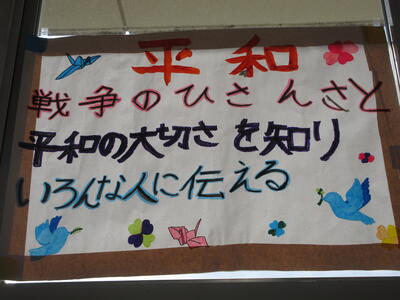 平和
戦争のひさんさと
平和の大切さを知り
いろんな人に伝える